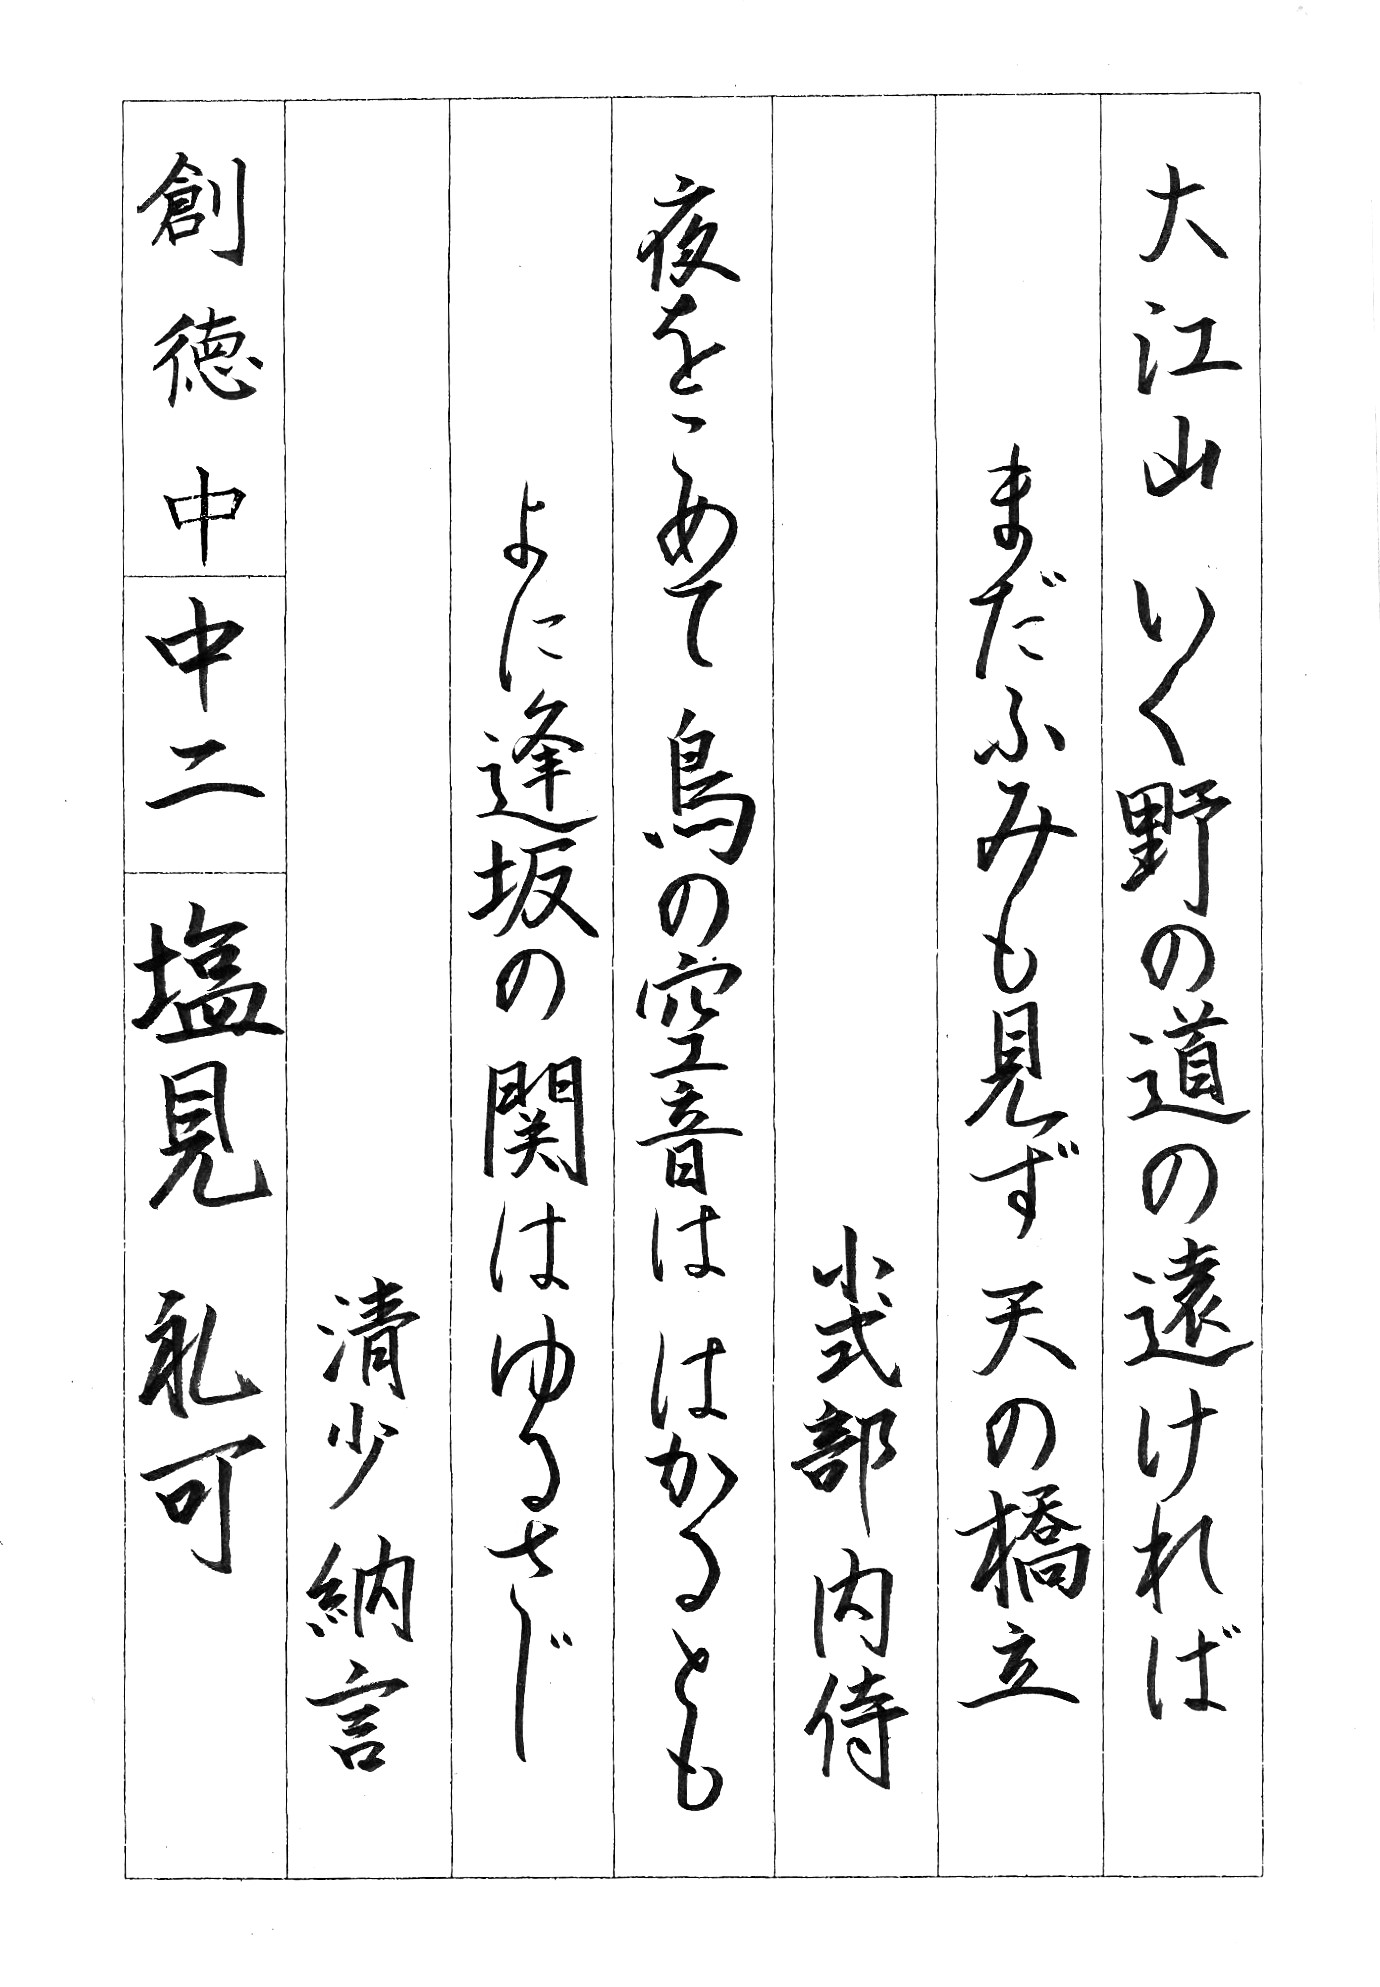 大江山 いく野の道の遠ければ
まだふみも見ず 天の橋立
小式部内侍
夜をこめて 鳥の空音は はかるとも
よに逢坂の 関はゆるさじ
清少納言
創徳中 中二 塩見 礼可